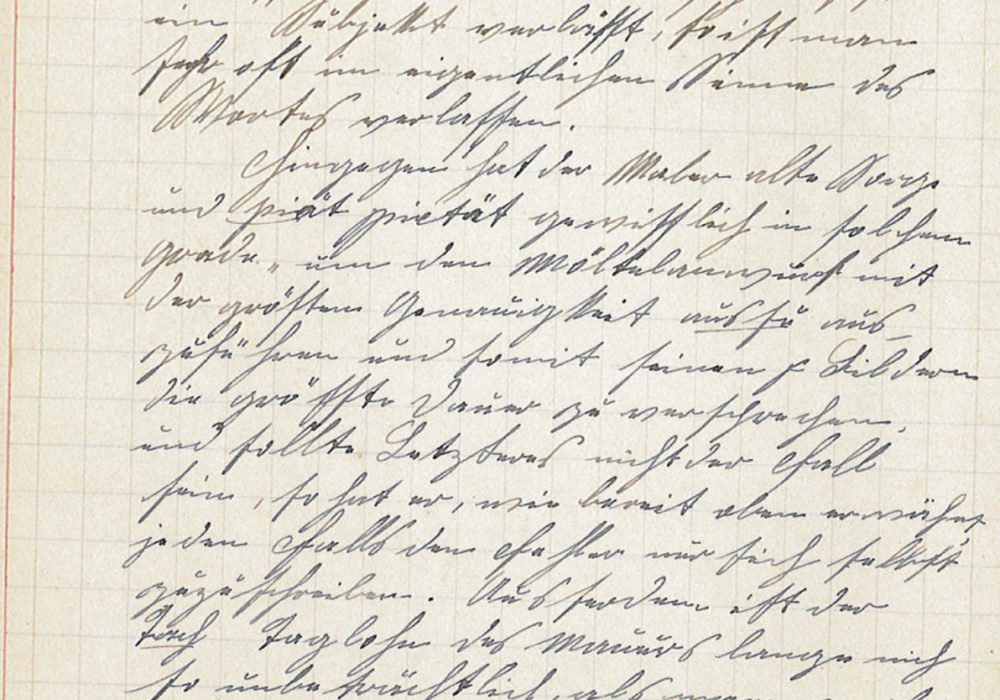 ein Subjekt verläßt, so ist man
sehr oft im eigentlichen Sinne des
Wortes verlassen.
Hingegen hat der Maler alte Sorge
und piät pietät gewißlich in solchem
Grade, um den Mörtelanwurf mit
der größten Genauigkeit ausfü aus-
zuführen und somit seinen Bildern
die größte Dauer zu versprechen,
und sollte Letzteres nicht der Fall
sein, so hat er, wie bereit oben erwähnt
jeden Falls den Fehler nur sich selbst
zuzuschreiben. Ausserdem ist der
Taglohn des Maurers lange nich
so unbeträchtlich, als man